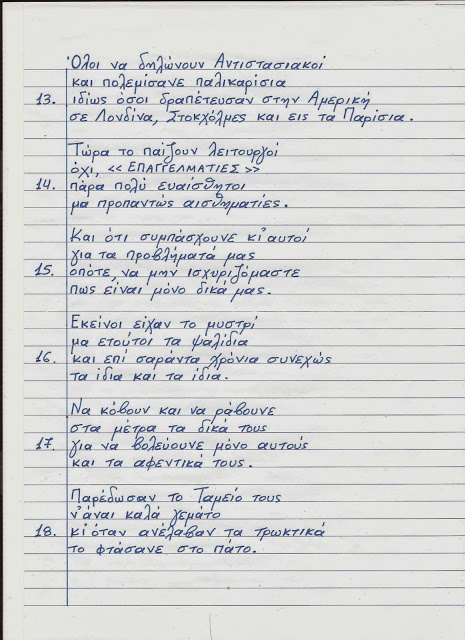 Όλοι να δηλώνουν Αντιστασιακοί
και πολεμίσανε παλικαρίσια
13. ιδίως όσοι δραπέτευσαν στην Αμερική
σε Λονδίνα, Στοκχόλμες και εις τα Παρίσια.
Τώρα το παίζουν λειτουργοί
όχι, << ΕΠΑΓΓΕΛΜΑΤΙΕΣ >>
14. πάρα πολύ ευαίσθητοι
μα προπαντώς αισθηματίες.
Και ότι συμπάσχουνε κι' αυτοί
για τα προβλήματά μας
15. οπότε, να μην ισχυριζόμαστε
πως είναι μόνο δικά μας.
Εκείνοι είχαν το μυστρί
μα ετούτοι τα ψαλίδια
16. και επί σαράντα χρόνια συνεχώς
τα ίδια και τα ίδια.
Να κόβουν και να ράβουνε
στα μέτρα τα δικά τους
17. για να βολεύουνε μόνο αυτούς
και τα αφεντικά τους.
Παρέδωσαν το Ταμείο τους
ν' άναι καλά γεμάτο
18. κι' όταν ανέλαβαν τα τρωκτικά
το φτάσανε στο πάτο.